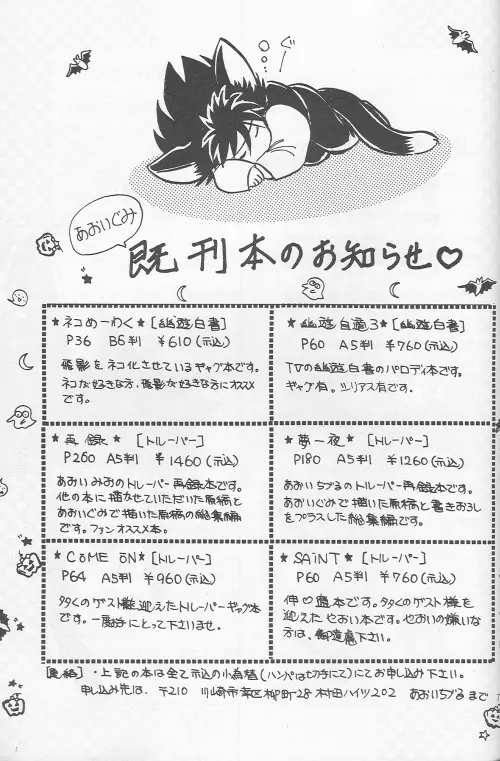 ぐー
あおいぐみ
既刊本のお知らせ♡
★ネコめーわく★[幽遊白書]
P36 B6判 ¥610(税込)
飛影をネコ化させているギャグ本です。
ネコが好きな方、飛影が好きな方にオススメ
です。
★幽遊自適3★[幽遊白書]
P60 A5判 ¥760(税込)
TVの幽遊白書のパロディ本です。
ギャグ有。シリアス有です。
★再録★[トルーパー]
P260 A5判 ¥1460(税込)
あおいみおのトルーパー再録本です。
他の本に描かせていただいた原稿と
あおいぐみで描いた原稿の総集編
です。ファンオススメ本。
★夢一夜★[トルーパー]
P180 A5判 ¥1260(税込)
あおいちづるのトルーパー再録本です。
あおいぐみで描いた原稿と書きおろし
をプラスした総集編です。
★COME ON★[トルーパー]
P64 A5判 ¥960(税込)
タタくのゲスト様迎えたトルーパーギャグ本
です。一度手にとって下さいませ。
★SAiNT★[トルーパー]
P60 A5判 ¥760(税込)
伸♡当本です。タタくのゲスト様を
迎えたやおい本です。やおいの嫌いな
方は、御遠慮下さい。
・上記の本は全て税込の小為替(ハンパは切手にて)にてお申し込み下さい。
申し込み先は、〒210 川崎市幸区柳町28 村田ハイツ202 あおいちづるまで